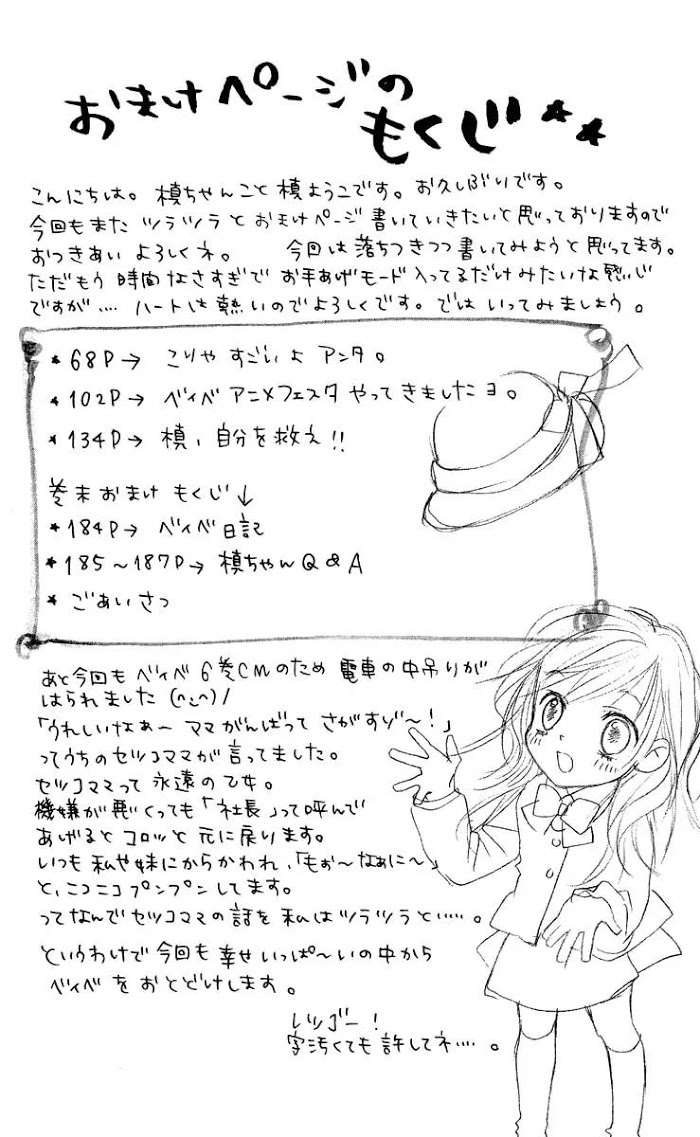 おまけページの
もくじ**
こんにちは。槙ちゃんこと槙ようこです。お久しぶりです。
今回もまた ツラツラと おまけページ 書いていきたいと思っておりますので
おつきあい よろしくネ。 今回は落ちつきつつ書いてみようと思ってます。
ただもう 時間なさすぎで お手あげモード 入ってるだけみたいな感じ
ですが…. ハートは熱いのでよろしくです。では いってみましょう。
*68P→ こりゃ すごいよ アンタ。
*102P→ ベイベ アニメフェスタ やってきましたヨ。
*134P→ 槙、自分を救え!!
巻末おまけ もくじ↓
*184P→ ベイベ日記
*185~187P→ 槙ちゃんQ&A
* ごあいさつ
あと今回も ベイベ6巻CMのため 電車の中吊りが
はられました (^◡^)/
「うれしいなぁー ママがんばって さがすゾ〜!」
ってうちのセツコママが言ってました。
セツコママって 永遠の乙女。
機嫌が悪くっても「社長」って呼んで
あげると コロッと 元に戻ります。
いつも 私や妹にからかわれ、「もぉ〜なぁに〜」
と、ニコニコプンプンしてます。
ってなんでセツコママの話を 私はツラツラと‥‥。
というわけで今回も 幸せいっぱ〜いの中から
ベイベを おとどけします。
レッゴー!
字汚くても許してネ‥‥。